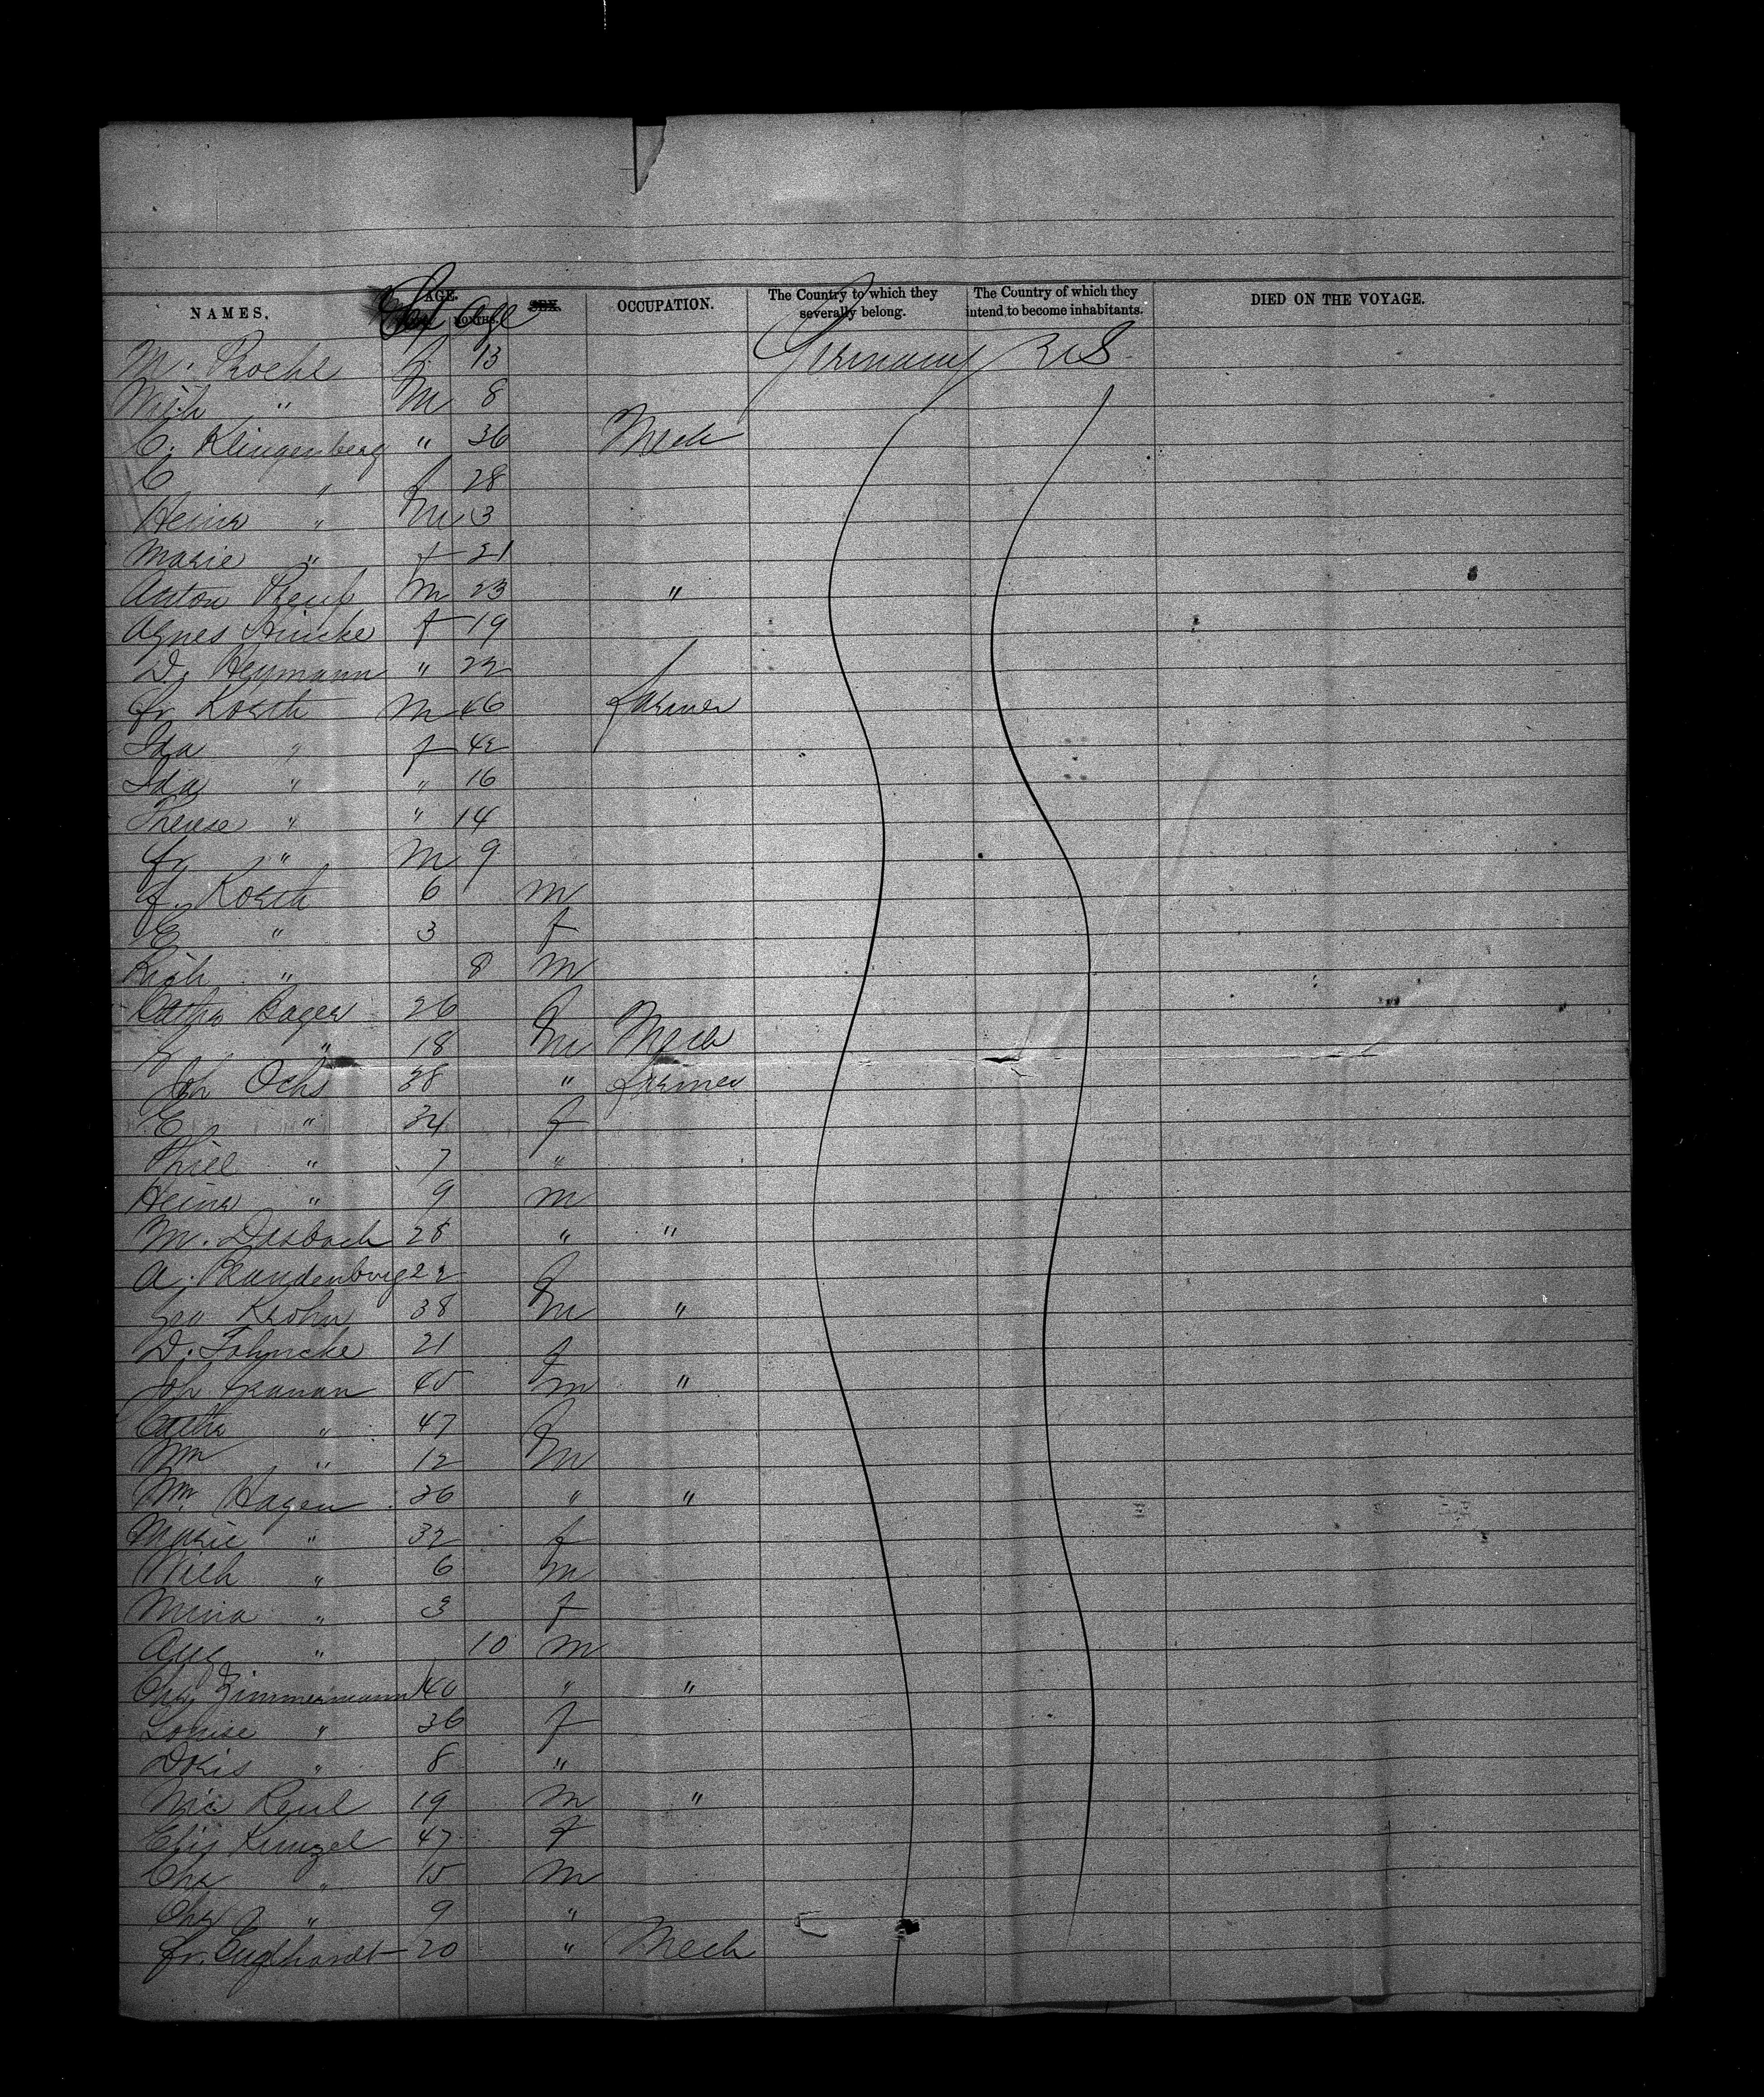 NAMES. AGE. MONTHS. SEX. OCCUPATION. The Country to which they severally belong. The Country of which they intend to become inhabitants. DIED ON THE VOYAGE.
Sex Age
M. Roehl f 13 Germany U S
Mich " M 8
C. Klingenberg " 36 Mech
C " f 28
Heinr " M 3
Marie " f 21
Anton M 23 "
Agnes Hincke f 19
D. Heymann " 22
Fr Korth M 46 farmer
Ida " f 42
Ida " " 16
Therese " " 14
Fr " M 9
F. Korth 6 M
E " 3 f
Rich " 8 M
Cathr Bager 26 f
" 18 M Mech
Joh Ochs 38 " farmer
E " 34 f
" 7 "
Heinr " 9 M
M. Disbach 28 " "
A. Brandenburg 22 f
Geo Krohn 38 M "
D. Fahncke 21 f
Joh 45 M "
Cathr " 47 f
Wm " 12 M
Wm Hagen 36 " "
Marie " 32 f
Wilh " 6 M
Mina " 3 f
Aug " 10 M
Chr Zimmermann 40 " "
Louise " 36 f
Doris " 8 "
Nic Reul 19 M "
Elis Kunzel 47 f
Chr " 15 M
Chr " 9 "
Fr. Englhardt 20 " Mech